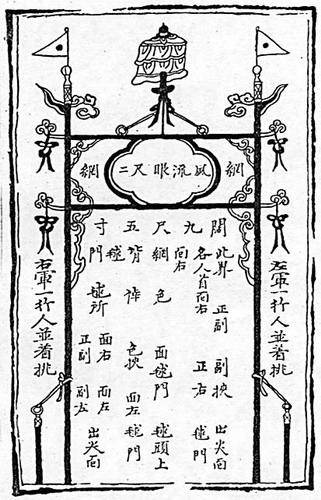 網 夙流眼尺二 網
左軍一行人並着挑
闊 此界 正副 副挾 出尖向
各人自向右 正右 毬門
九 向右
尺 網 色 面毬門 毬頭上
五 背作 色挾 面左毬門
毬
寸 門 毬所 面右 面左 出尖向
正副 副左
右軍一行人並着挑